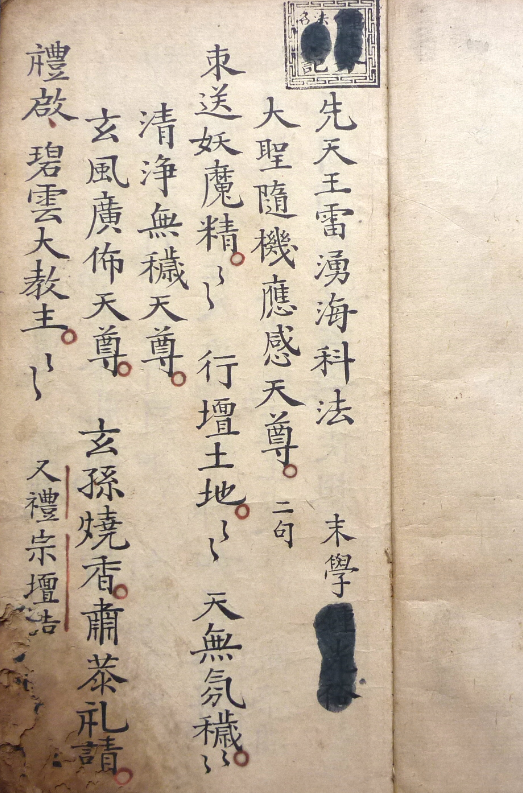 先天王雷湧海科法 末學
大聖隨機應感天尊。二句
朿送妖魔精。〻 行壇土地。〻 天無氛穢。〻
清浄無穢天尊。
玄風廣佈天尊。玄孫燒香。肅恭礼請。
禮啟、碧雲大教主。〻 又禮宗壇告